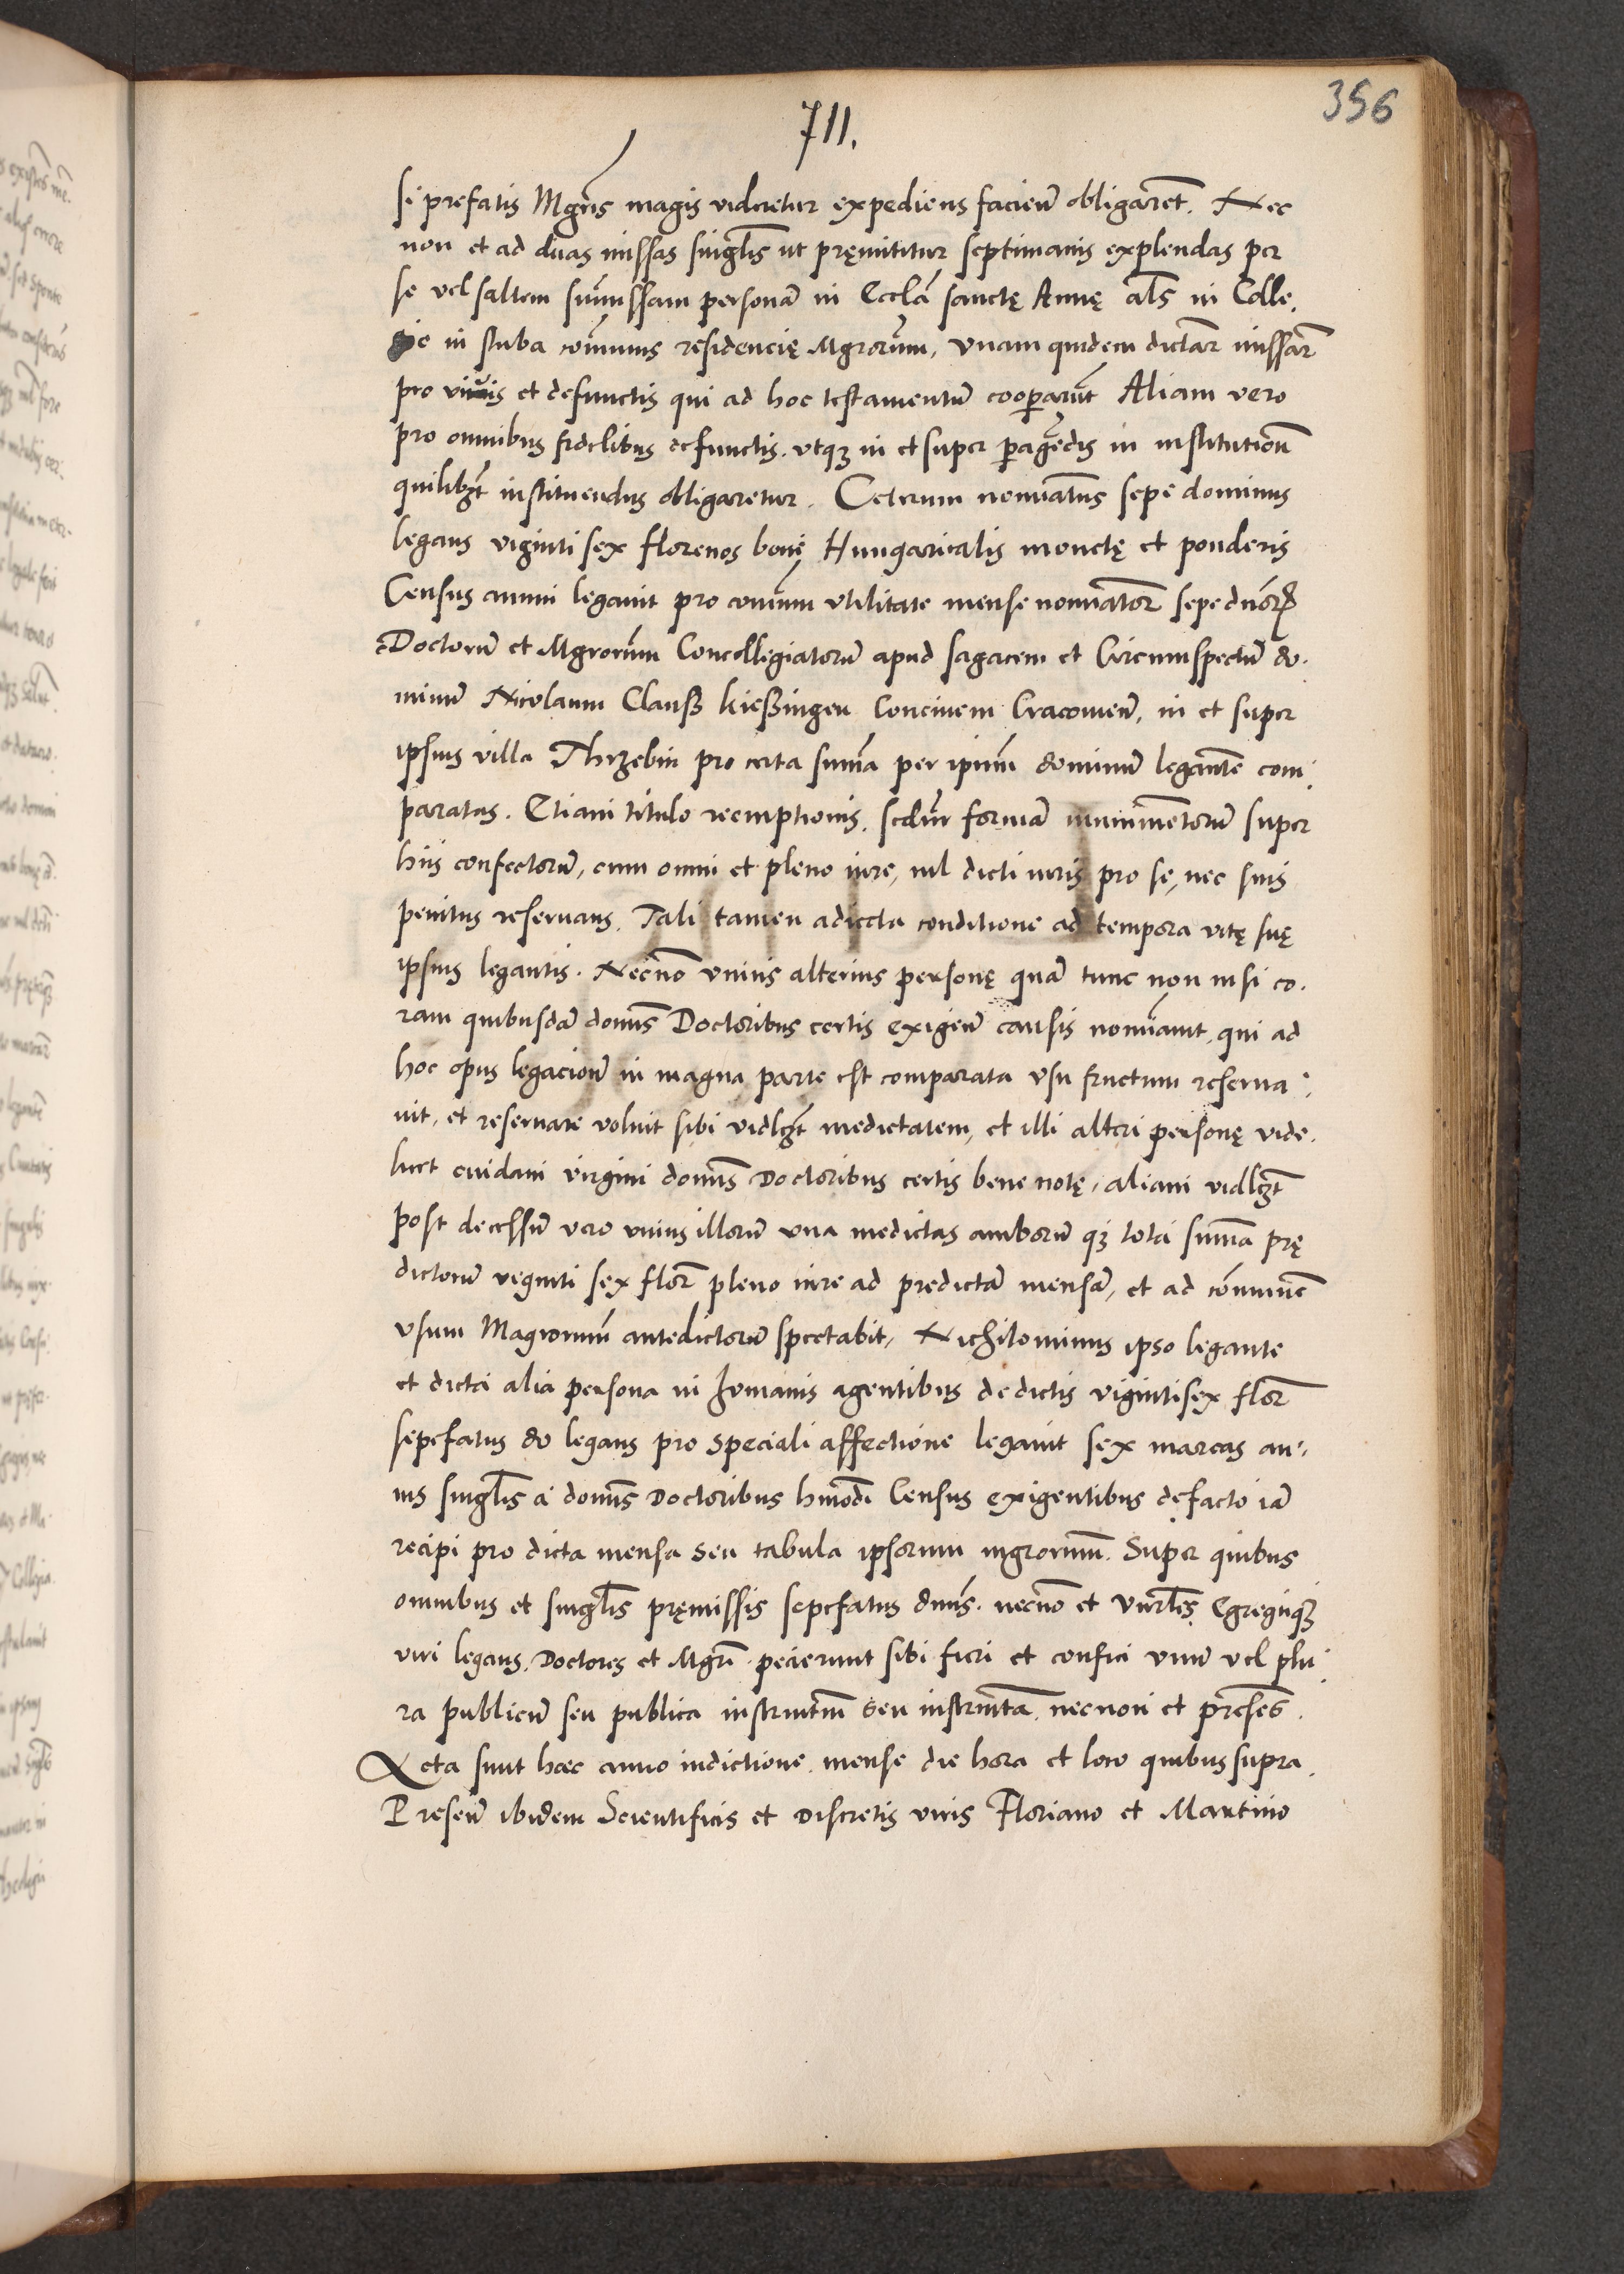 356
711.
si prefatis Mgrĩs magis videretur expediens faciend̃ obligaret̃. Nec
non et ad duas missas singlĩs ut pręmittitur septimanis explendas per
se vel saltem sum̃issam personã in Eccl̃a sanctę Annę als̃ in Colle.
gio in stuba com̃unis residencię Mgrorum̃, Vnam quidem dictar̃ missar̃
pro viuis et defunctis qui ad hoc testamentũ cooperarũt Aliam vero
pro omnibus fidelibus defunctis. vtqz in et super peragẽdis in institutioñ
quilibet̃ instituendus obligaretur. Ceterum nomiatus̃ sepe dominus
legans viginti sex florenos bonę Hungaricalis monetę et ponderis
Census annui legauit pro com̃uni vtilitate mense nomiator̃ sepe dñor̃
Doctorũ et Mgrorum̃ Concollegiatorũ apud sagacem et Circumspectũ do.
minũ Nicolaum Clauß kießingen Conciuem Cracouień, in et super
ipsius villa Thrzebin pro certa sum̃a per ipsum̃ dominũ legantẽ com
paratas. Etiam titulo reemptionis. secdm̃ formã munimẽtorũ super
hiis confectorũ, cum omni et pleno iure, nil dicti iuris pro se, nec suis
penitus reseruans. Tali tamen adiecta conditione ad tempora vitę suę
ipsius legantis. Necnõ vnius alterius personę quã tunc non nisi co.
ram quibusdã domĩs Doctoribus certis exigeñ causis nomĩauit, qui ad
hoc opus legacioñ in magna parte est comparata vsu fructum reserua
uit, et reseruare voluit sibi vidlczt̃ medietatem, et illi alteri personę vide.
licet cuidam virgini domĩs Doctoribus certis bene notę, aliam vidlczt̃
post decessũ vero vnius illorũ vna medietas amborũ qz tota sum̃a prę
dictorũ veginti sex flor̃ pleno iure ad predictã mensã, et ad com̃unẽ
vsum Magrorum̃ antedictorũ spectabit, Nichilominus ipso legante
et dicta alia persona in humanis agentibus de dictis vigintisex flor̃
sepefatus do legans pro speciali affectione legauit sex marcas an,
nis singlĩs a domĩs Doctoribus hmõdi Census exigentibus defacto iã
recipi pro dicta mensa seu tabula ipsorum mgrorum̃. Super quibus
omnibus et singlĩs pręmissis sepefatus dnũs. necnõ et Vnrl̃es Egregiiqz
viri legans, Doctores et Mgrĩ petierunt sibi fieri et confici vnũ vel plu
ra publicũ seu publica instrmtm̃ seu instrmta̅. necnon et pr̃eseñs.
Acta sunt haec anno indictione mense die hora et loco quibus supra.
Preseñ ibidem Scientificis et Discretis viris Floriano et Martino